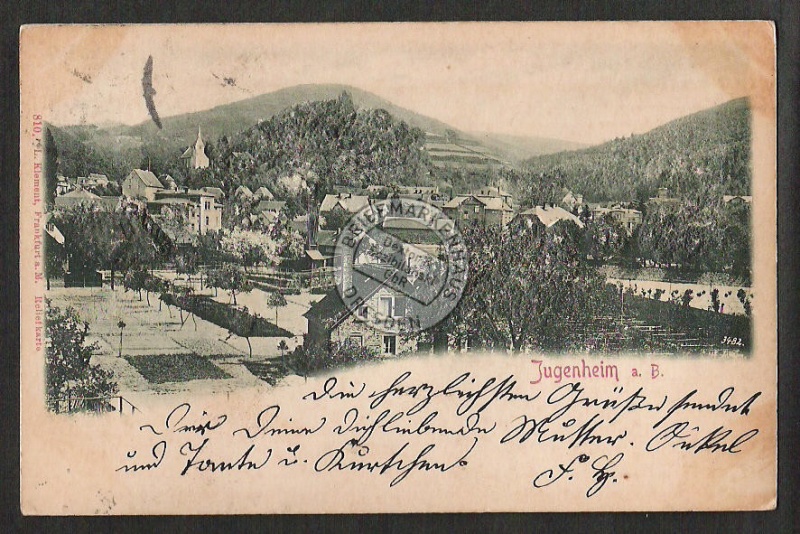 810. L. Klement, Frankfurt a. M. Reliefkarte
BRIEFMARKENHAUS
DRESDEN
3482.
Jugenheim a. B.
Die herzlichsten Grüße sendet
Dir Deine Dichliebende Mutter. Onkel
und Tante u. Kurtchen